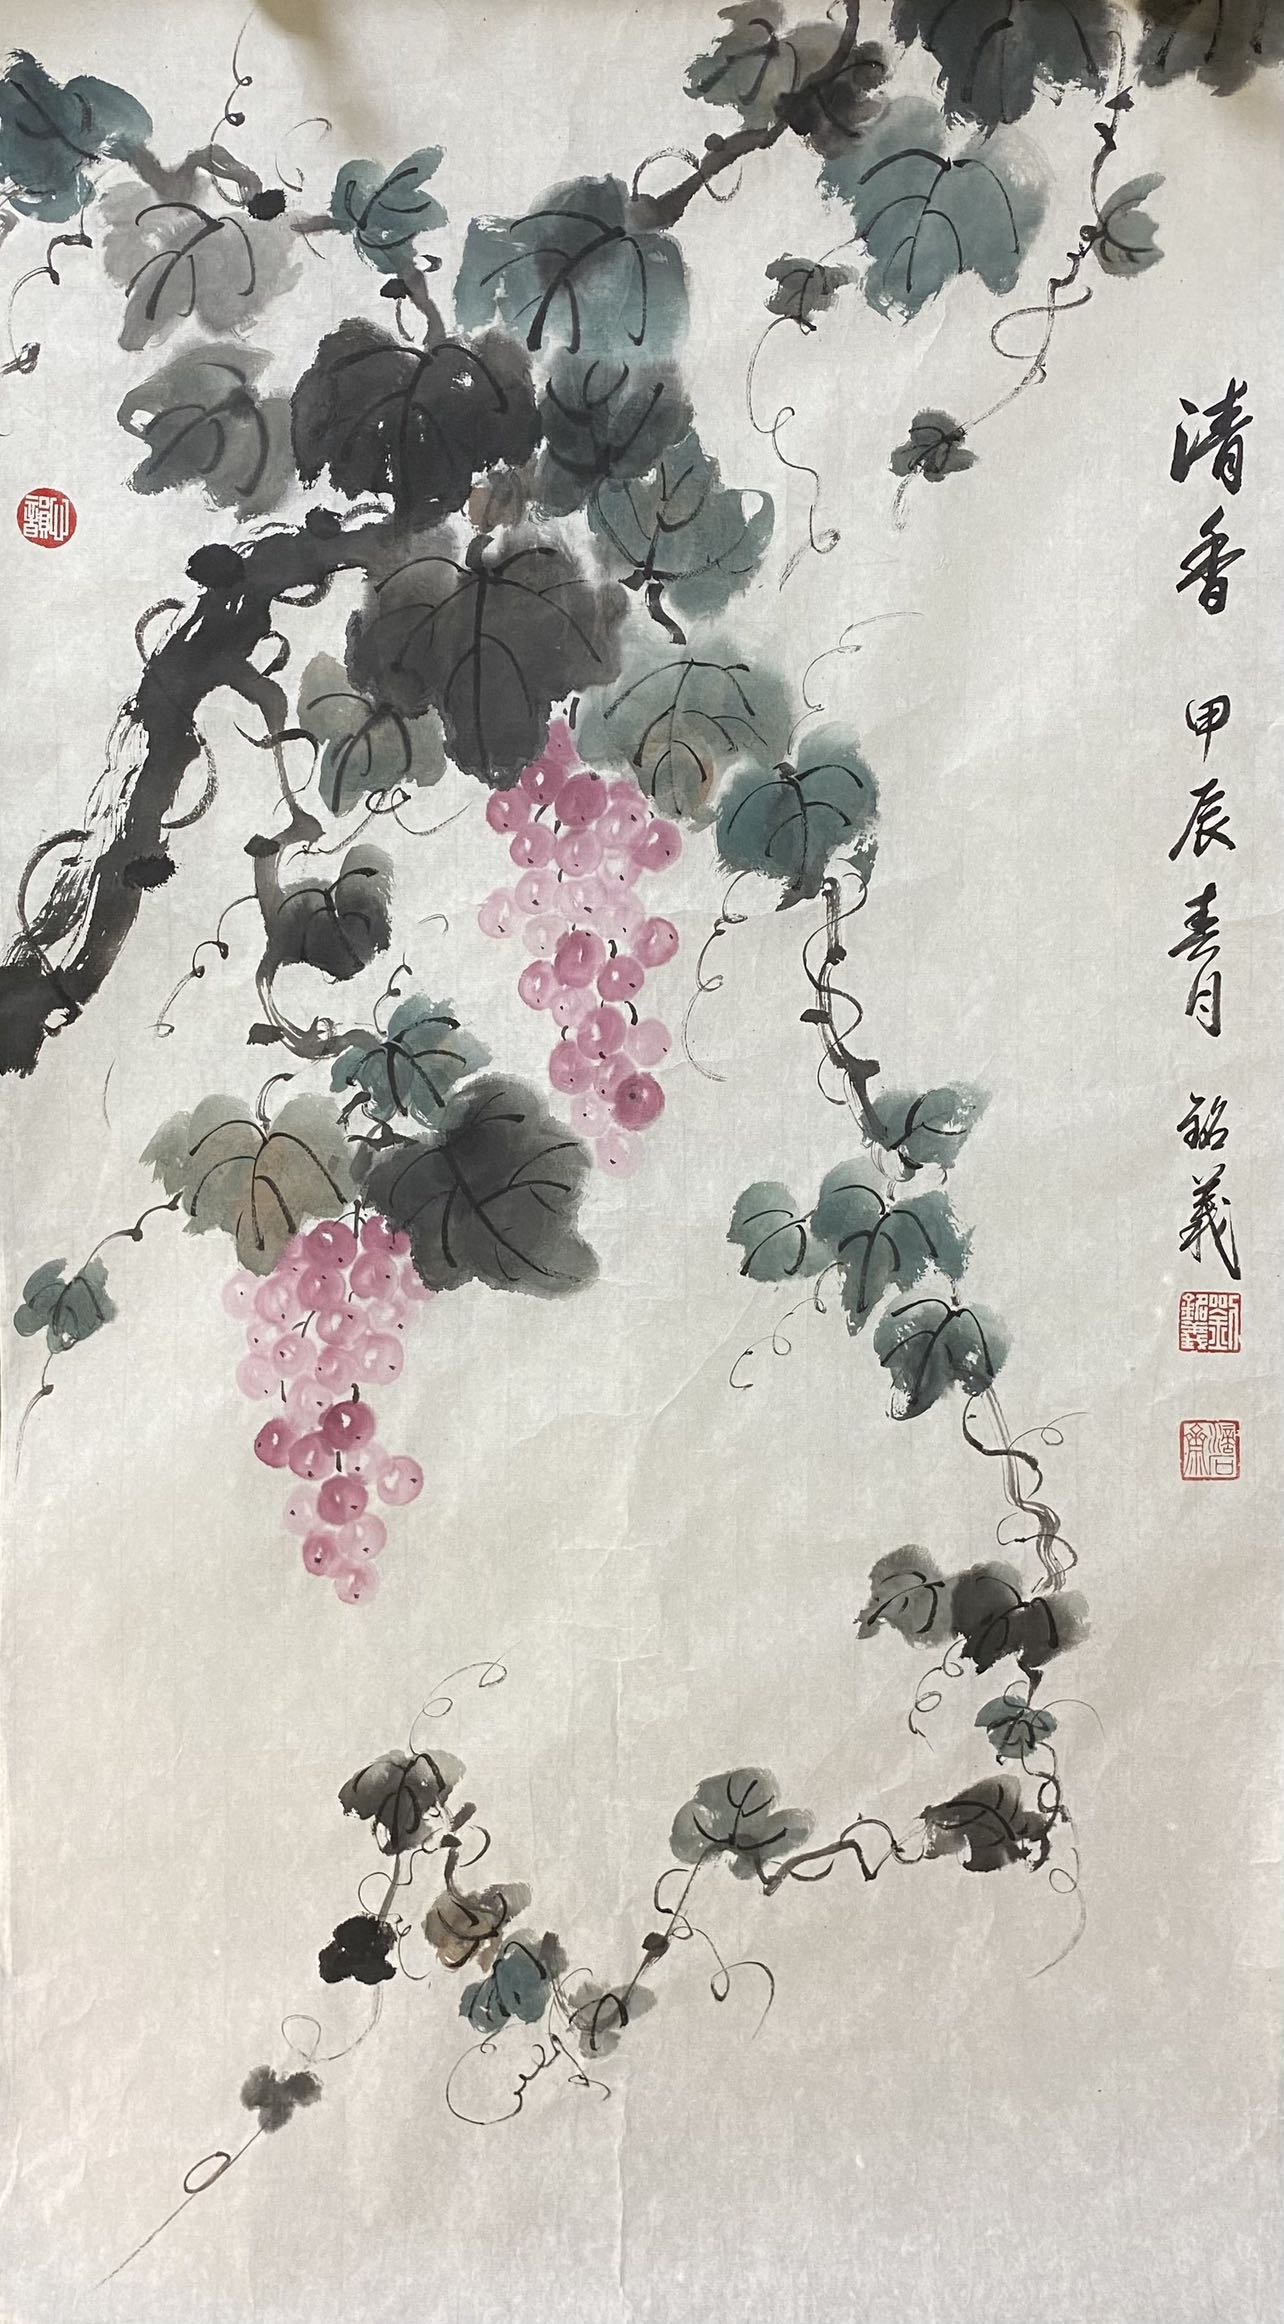 清香 甲辰春月 銘義
劉銘義